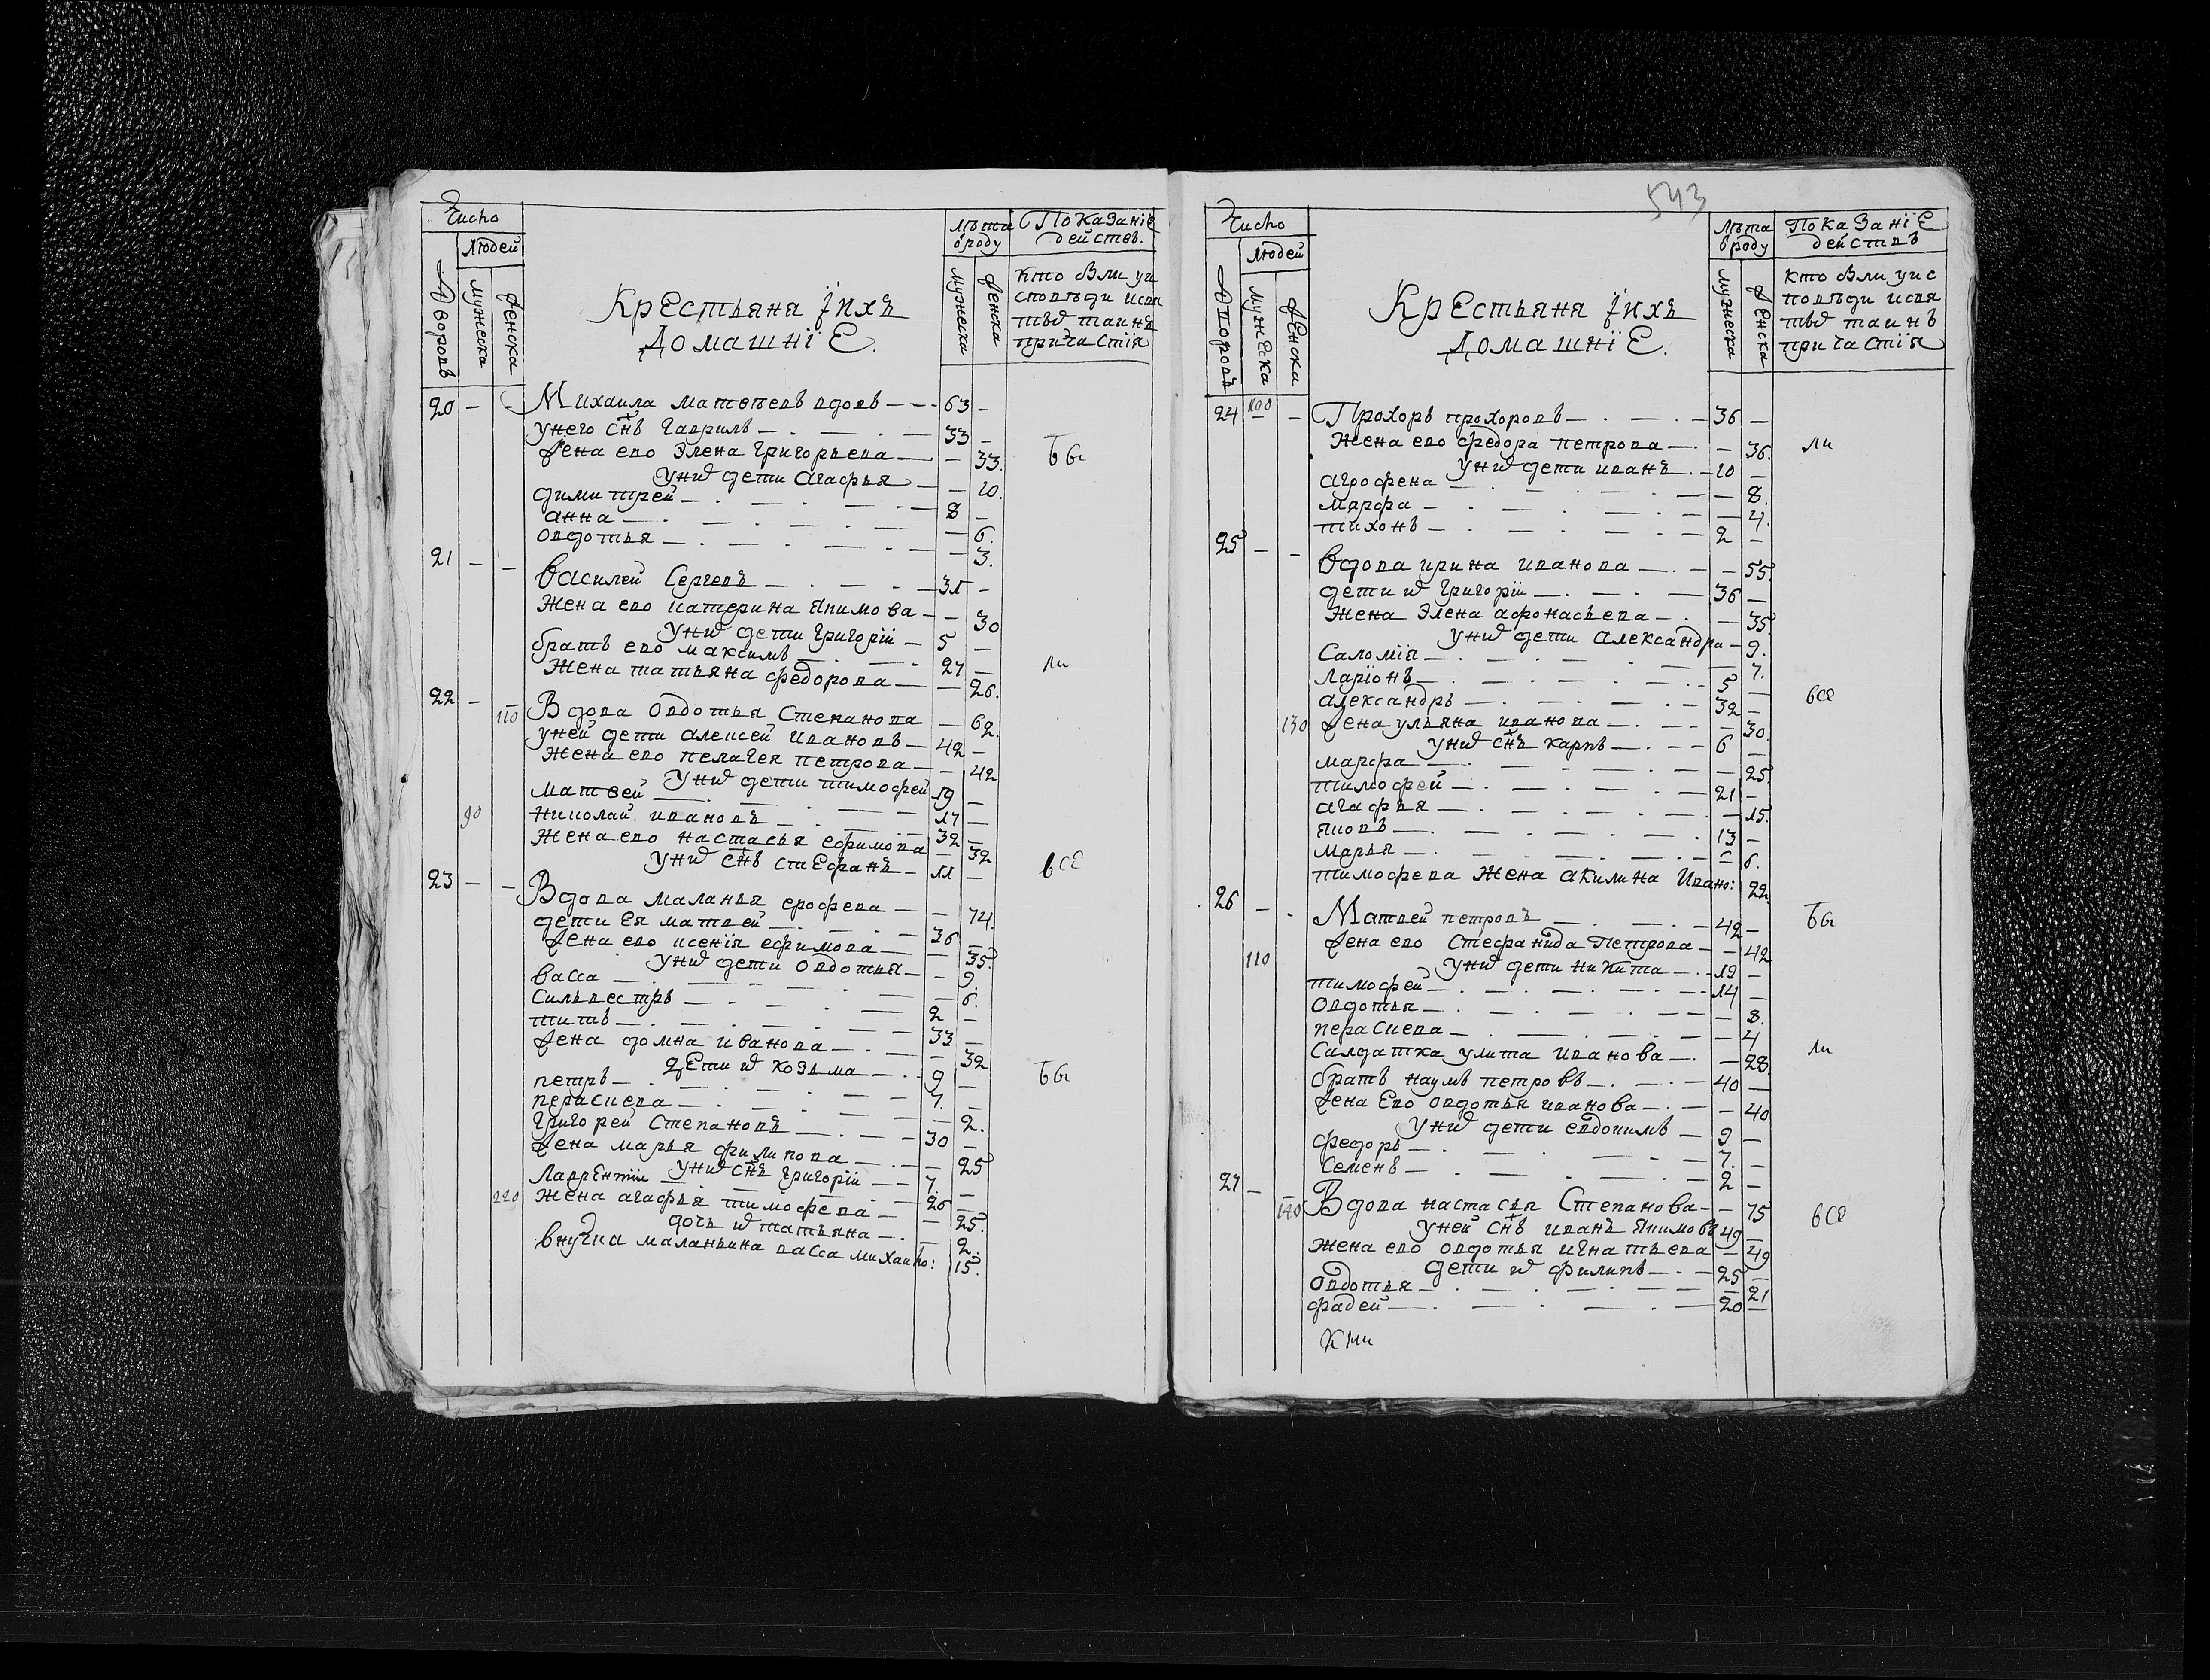 Число
Людей
Дворовъ
мужеска
женска
Крестьяня їихъ
домашніе.
Лѣта
ѿ роду
мужеска
женска
Показаніе
действъ.
кто былъ уи
сповѣди исвя
тыѯ таинъ
причастія
20 — - Михаила матѳѣевъ вдовъ — 63 —
унего сн҃ъ гаврилъ — 33 —
жена ево Элена Григорьева — — 33. Бы
униѯ дети Агафья — — 10.
димитрей — 8 —
анна — — 6.
овдотья — — 3.
21 — — Василей Сергевъ — 31 —
Жена ево катерина Якимова — — 30
униѯ дети григоріи — 5 —
братъ ево максимъ — 27 — ли
Жена татьяна федорова — — 26.
22 — 110 Вдова Овдотья Степанова — 62.
уней дети алексей ивановъ — 42 —
Жена ево пелагея петрова — — 42
униѯ дети тимофей 19 —
матвей — 17 —
90 николай ивановъ — 32 —
Жена ево настасья ефимова — 32
униѯ сн҃ъ стефанъ — 11 — все
23 — — Вдова маланья ерофева — — 74.
дети ея матвей — 36 —
жена ево ксенія ефимова — — 35.
униѯ дети овдотья — — 9.
васса — — 6.
Сильвестръ — 2 —
титъ — 33 —
жена домна иванова — — 32
дети иѯ козьма — 9 — Бы
петръ — 7. —
параскева — — 2.
Григорей Степановъ — 30 —
жена марья филипова — — 25
униѯ сн҃ъ григоріи — 7. —
Лаврентіи — 26 —
120 Жена агафья тимофева — — 25.
дочь иѯ татьяна — — 2.
внучка маланьина васса михаило: 15.
543
Число
Людей
Дворовъ
мужеска
женска
Крестьяня їихъ
домашніе.
Лѣта
ѿ роду
мужеска
женска
Показаніе
действъ
кто былъ уис
повѣди исвя
тыѯ таинъ
причастія
24 100 — Прохоръ прохоровъ — 36 —
Жена ево федора петрова — — 36. ли
униѯ дети иванъ — 10 —
агрофена — — 8.
марфа — — 4.
тихонъ — 2 —
25 — — Вдова ирина иванова — — 55.
дети иѯ григоріи — 36 —
Жена Элена афонасьева — — 35.
униѯ дети александра — 9.
Саломія — — 7.
Ларіонъ — 5 —
александръ — 32 — все
130 жена ульяна иванова — — 30.
униѯ сн҃ъ карпъ — 6 —
марфа — — 25.
тимофей — 21 —
агафья — — 15.
яковъ — 13 —
марья — — 6.
тимофева жена акилина ивано: 22.
26 — - Матвей петровъ — 42 — Бы
жена ево Стефанида Петрова — — 42
110 униѯ дети никита — 19 —
тимофей — 14 —
овдотья — — 8.
параскева — — 4
Салдатка улита иванова — — 28. ли
братъ наумъ петровъ — 40 —
жена ево овдотья иванова — — 40
униѯ дети евдокимъ — 9 —
федоръ — 7. —
Семенъ — 2 —
27 — 140 Вдова настасья Степанова — — 75 все
уней сн҃ъ иванъ якимовъ 49 —
Жена ево овдотья игнатьева — 49
дети иѯ филипъ — 25 —
овдотья — — 21
фадей — 20 —